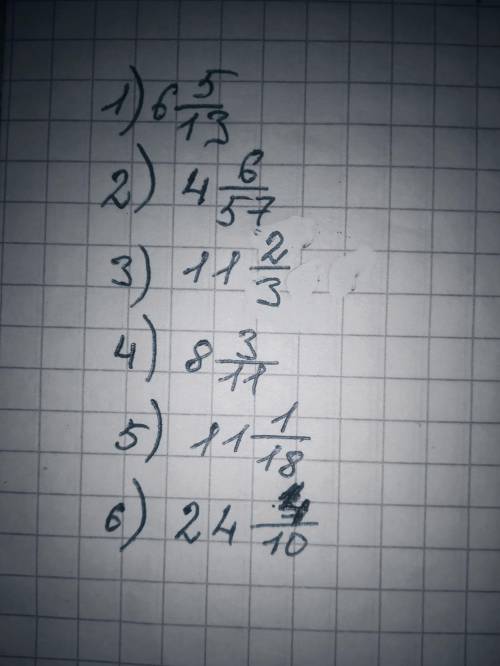 1) 6 5/13
2) 4 6/57
3) 11 2/3
4) 8 3/11
5) 11 1/18
6) 24 /10